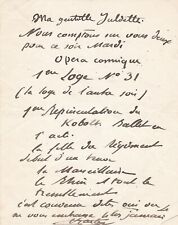 Ma gentille Juliette.
Nous comptons sur vous deux
pour ce soir Mardi
Opera comique
1ere Loge N° 31
(la loge de l'autre soir)
1ere Représentation des
Kobolds Ballet en
1 acte
la fille du Régiment
début d'un tenor
la Marseillaise
le Rhin
c'est convenu
on vous embrasse